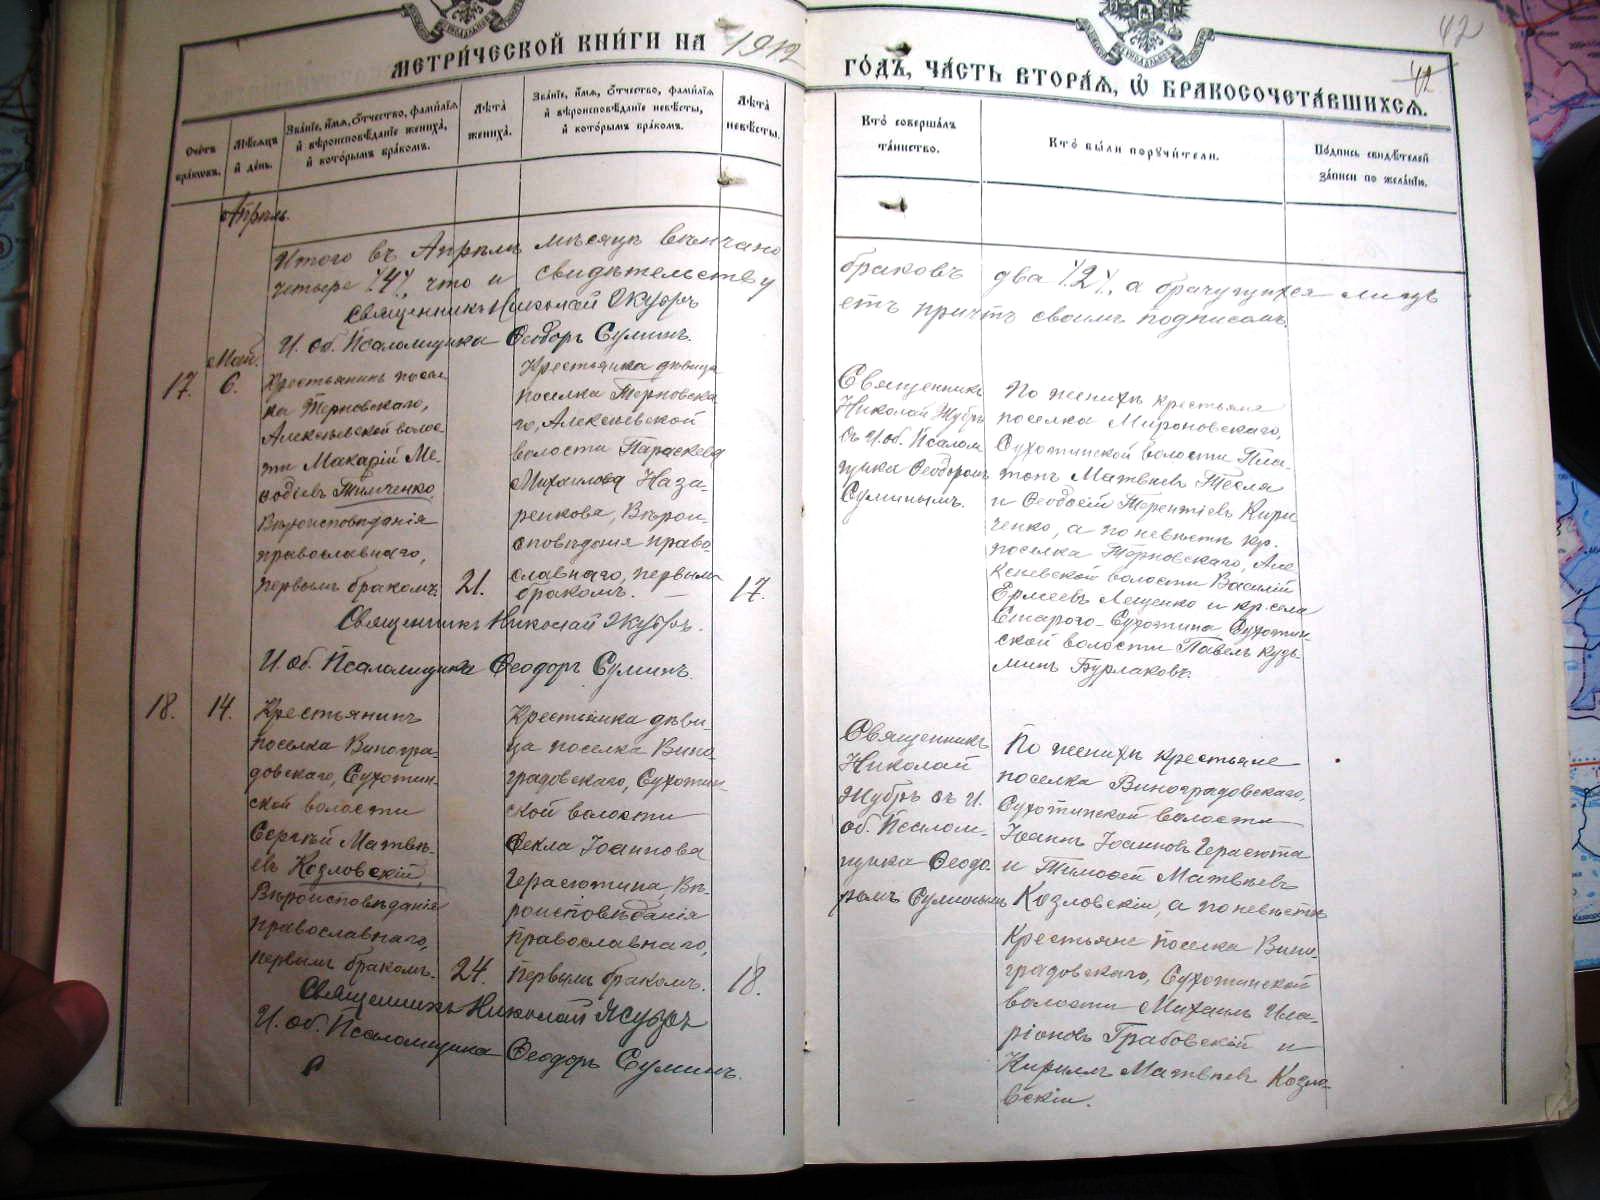 42
42
МЕТРИ́ЧЕСКОЙ КНИ́ГИ НА 1912
ГО́ДЪ, ЧА́СТЬ ВТОРА́Я, Ѡ БРАКОСОЧЕТА́ВШИХСЯ.
Сче́тъ
бра́ковъ.
Мѣ́сяцъ
и҆ де́нь.
Зва́нїе, и҆́мя, ѻ҆́тчество, фами́лїя
и҆ вѣроисповѣ́данїе жениха̀,
и҆ кото́рымъ бра́комъ.
Лѣ́та
жениха̀.
Зва́нїе, и҆́мя, ѻ҆́тчество, фами́лїя
и҆ вѣроисповѣ́данїе невѣ́сты,
и҆ кото́рымъ бра́комъ.
Лѣ́та
невѣ́сты.
Кто̀ соверша́лъ
та́инство.
Кто̀ бы́ли поручи́тели.
По́дпись свидѣ́телей
за́писи по жела́нїю.
Апрѣль.
Итого въ Апрѣлѣ мѣсяцѣ вѣнчано
браковъ два /2/, а брачущихся лицъ
четыре /4/, что и свидѣтельству
етъ причтъ своимъ подписомъ.
Священникъ Николай Жубръ
И. об. Псаломщика Ѳеодоръ Суминъ.
Май.
17.
6.
Крестьянинъ посел
ка Терновскаго,
Алексѣевской волос
ти Макарій Ме-
ѳодіевъ Тимченко
Вѣроисповѣданія
православнаго,
первымъ бракомъ.
21.
Крестьянка дѣвица
поселка Терновска
го, Алексѣевской
волости Параскева
Михаилова Наза-
ренкова, Вѣрои-
сповѣданія право-
славнаго, первымъ
бракомъ.
17.
Священникъ
Николай Жубръ
съ И. об. Псалом
щика Ѳеодоромъ
Суминымъ.
По женихѣ крестьяне
поселка Мироновскаго,
Сухотинской волости Пла-
тонъ Матвѣевъ Тесля
и Ѳеодосій Терентіевъ Кири
ченко, а по невѣстѣ кр.
поселка Терновскаго, Але
ксѣевской волости Василій
Ермѣевъ Лещенко и кр. села
Стараго-Сухотина Сухотин-
ской волости Павелъ Кузь-
минъ Бурлаковъ.
Священникъ Николай Жубръ.
И. об. Псаломщика Ѳеодоръ Суминъ.
18.
14.
Крестьянинъ
поселка Виногра-
довскаго, Сухотин-
ской волости
Сергѣй Матвѣ-
евъ Козловскій,
Вѣроисповѣданія
православнаго,
первымъ бракомъ.
24.
Крестьянка дѣви-
ца поселка Вино
градовскаго, Сухотин-
ской волости
Ѳекла Іоаннова
Герасютина, Вѣ-
роисповѣданія
православнаго,
первымъ бракомъ.
18.
Священникъ
Николай
Жубръ съ И.
об. Псалом-
щика Ѳеодо-
ромъ Суминымъ
По женихѣ крестьяне
поселка Виноградовскаго,
Сухотинской волости
Іоаннъ Іоанновъ Герасюта
и Тимоѳей Матвѣевъ
Козловскій, а по невѣстѣ
Крестьяне поселка Вино-
градовскаго, Сухотинской
волости Михаилъ Ила-
ріоновъ Грабовскій и
Кириллъ Матвѣевъ Козло-
вскій.
Священникъ Николай Жубръ
И. об. Псаломщика Ѳеодоръ Суминъ.